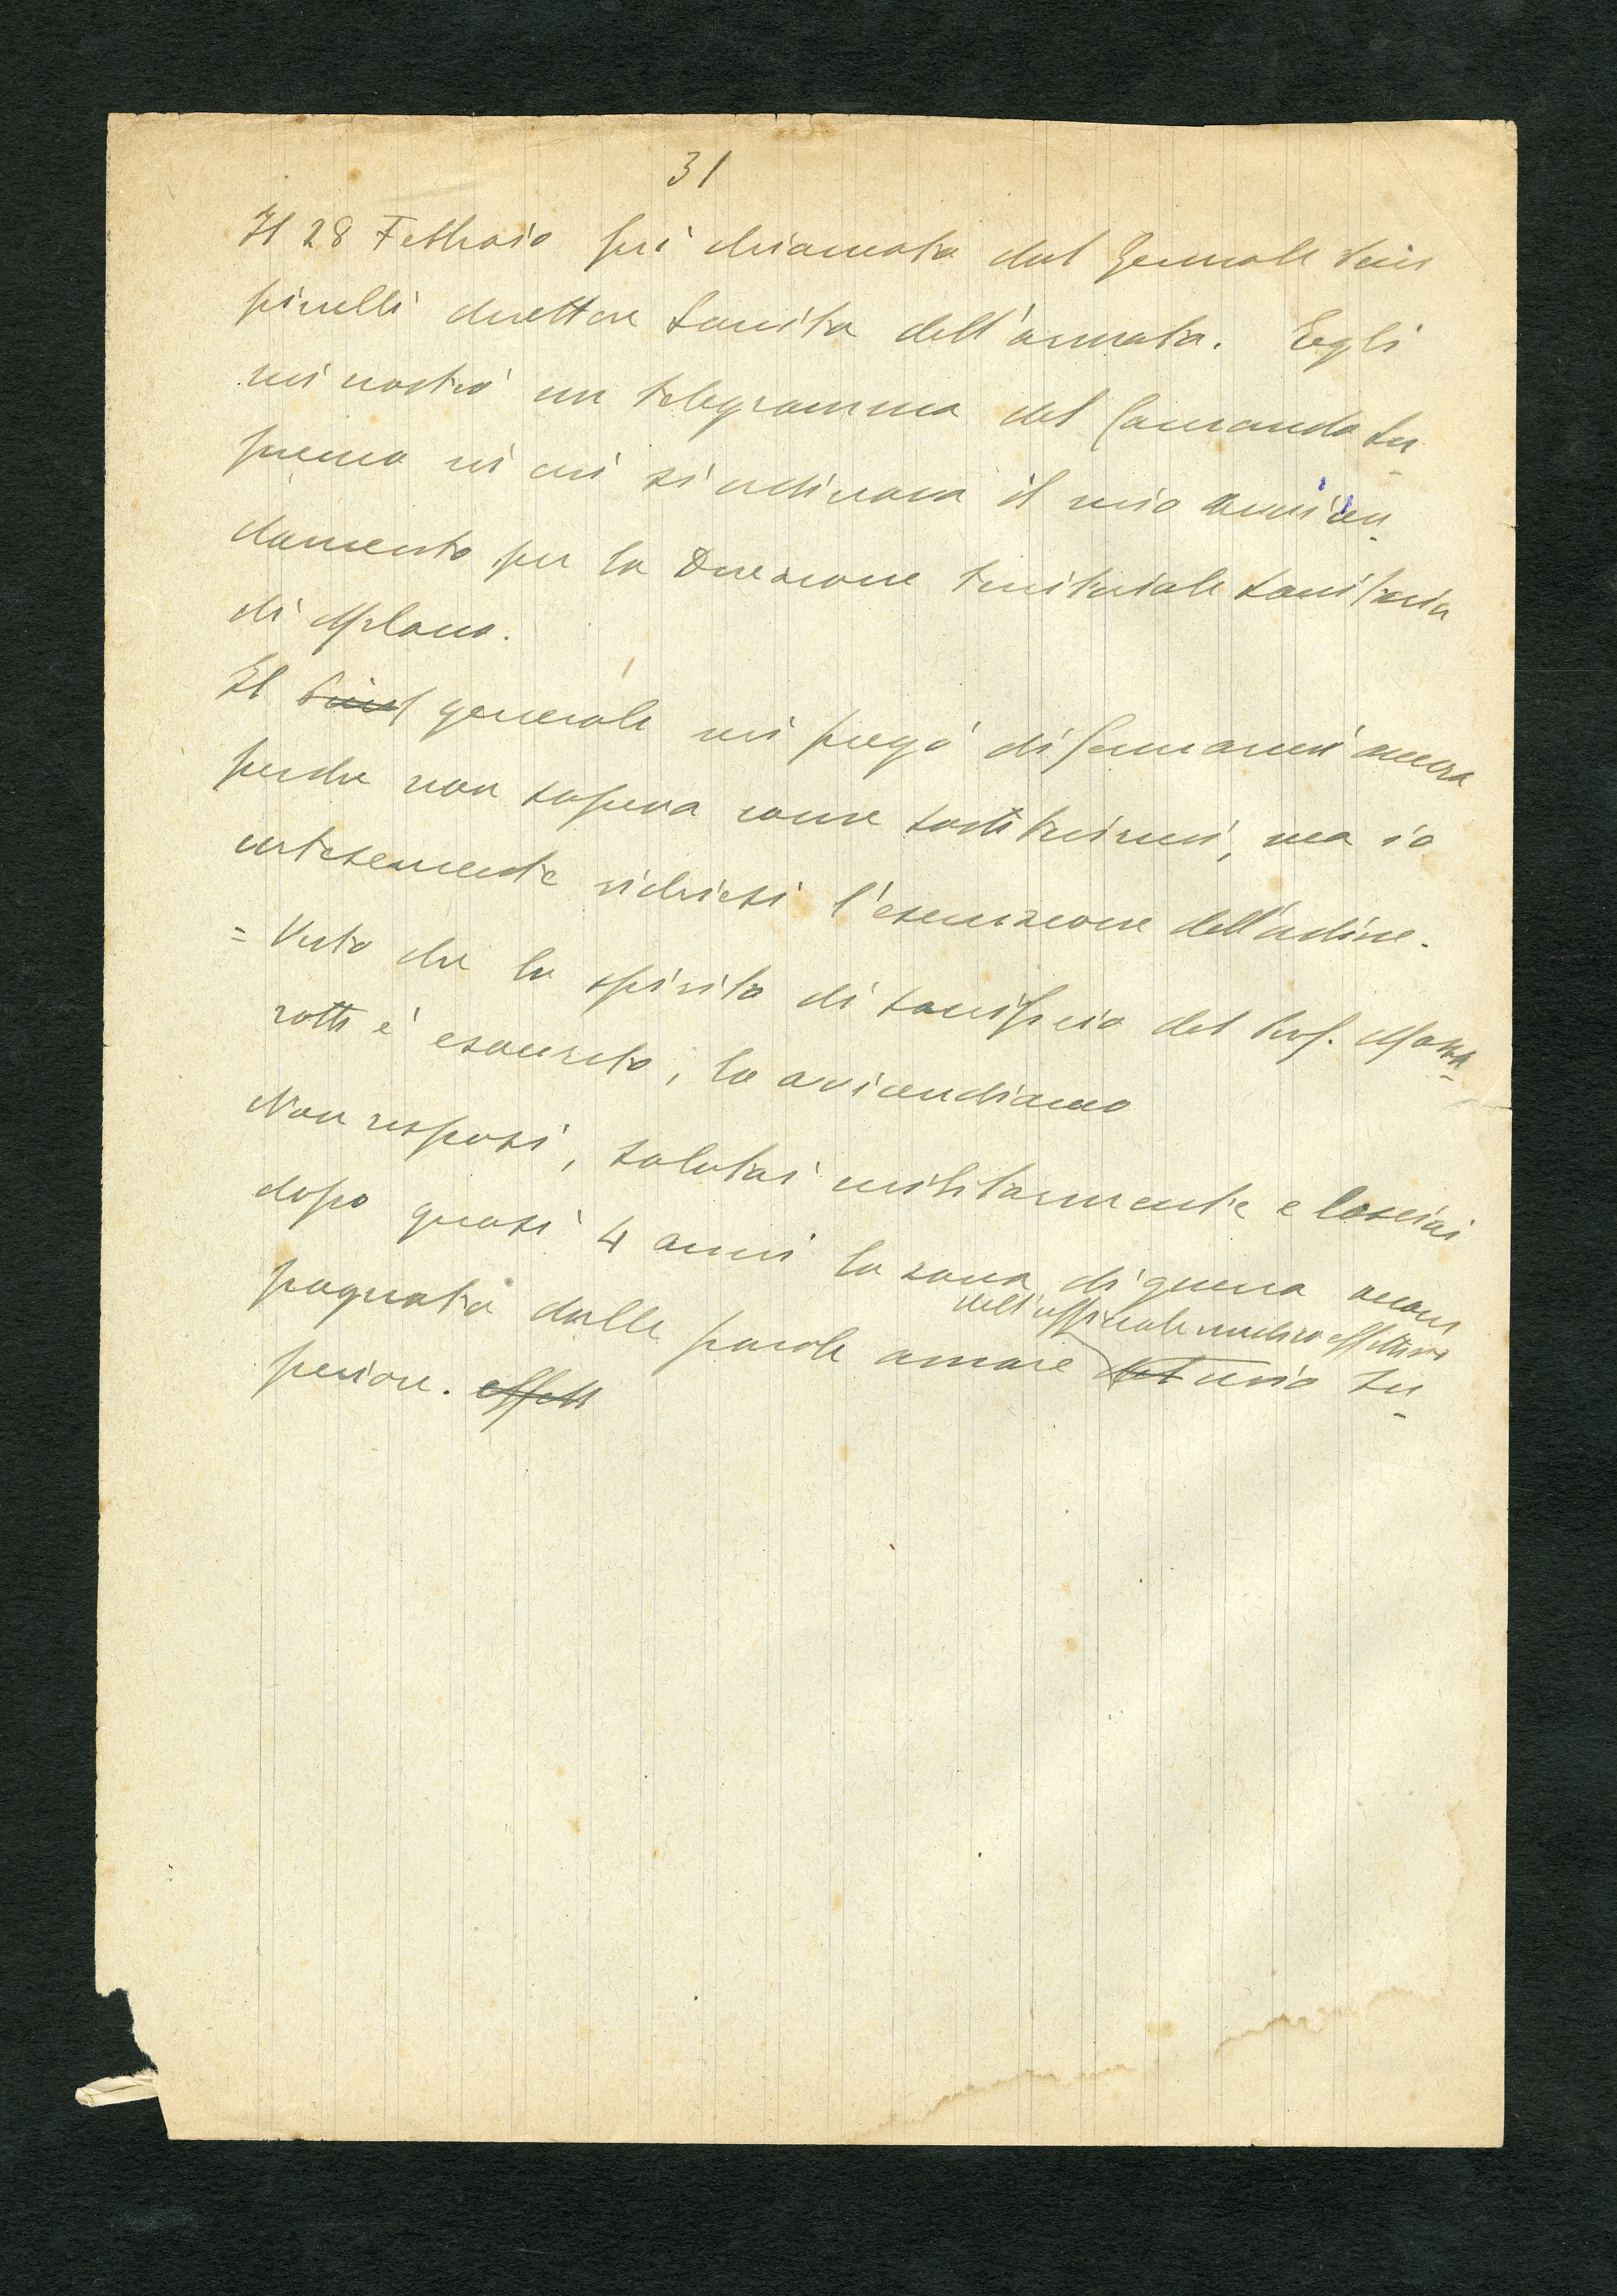 31
Il 28 Febbraio fui chiamato dal Generale
pinelli direttore Sanita dell'armata. Eegli
mi nostrò un telegramma del Comando Su
premo in cui si ordinava il mio avvicen
damento per la Direzione territoriale sanitaria
di Milano.
Il generale mi pregò di fermarmi ancora
perche non sapeva come sostituirmi, ma io
cortesemente richiesi l'esecuzione dell'ordine.
= Visto che lo spirito di sacrificio del Prof. Mazza
rotti è esaurito, lo avicendiamo
Non risposi, salutai militarmente e lasciai
dopo quasi 4 anni la zona di guerra accom
dell'ufficiale medico effettivo
pagnato dalle parole amare del mio su
periore. effett